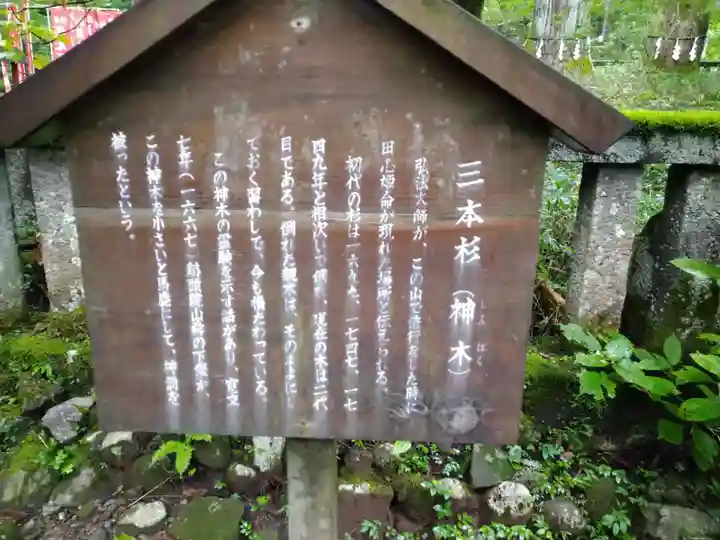 三本杉(神木)
しんぼく
弘法大師が、この山で修行をした時に
田心姫命が現れた場所と伝えられる。
初代の杉は一六九九、一七四七、一七
四九年と相次いで倒れ、現在の木は二代
目である。倒れた親木は、そのままにし
ておく習わしで、今も横たわっている。
この神木の霊験を示す話があり、寛文
七年(一六六七)、
の下僕が、
この神木を小さいと馬鹿にして、神罰を
被ったという。